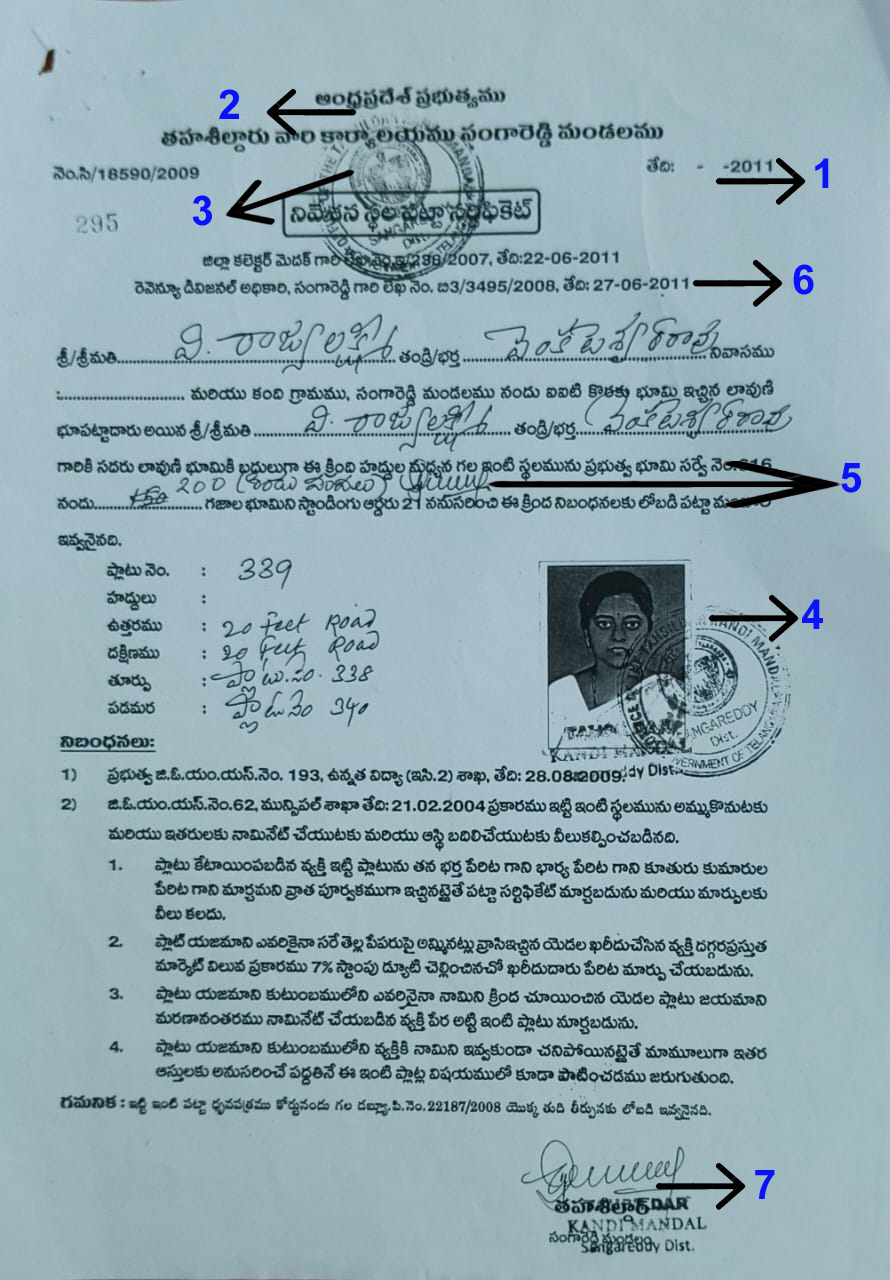 2
ఆంధ్రప్రదేశ్ ప్రభుత్వము
తహశీల్దారు వారి కార్యాలయము సంగారెడ్డి మండలము
నెం.సి/18590/2009
తేది: - -2011
1
3
నివేశన స్థల పట్టా సర్టిఫికెట్
295
SANGAREDDY
Dist.
జిల్లా కలెక్టర్ మెదక్ గారి /2007, తేది:22-06-2011
రెవెన్యూ డివిజనల్ అధికారి, సంగారెడ్డి గారి లేఖ నెం. బి3/3495/2008, తేది: 27-06-2011
6
శ్రీ/శ్రీమతి వి. రాజ్యలక్ష్మి తండ్రి/భర్త వెంకటేశ్వరరావు నివాసము
:.............................. మరియు కంది గ్రామము, సంగారెడ్డి మండలము నందు ఐఐటి కొరకు భూమి ఇచ్చిన లావుణి
భూపట్టాదారు అయిన శ్రీ/శ్రీమతి వి. రాజ్యలక్ష్మి తండ్రి/భర్త వెంకటేశ్వరరావు
గారికి సదరు లావుణి భూమికి బద్దులుగా ఈ క్రింది హద్దుల మధ్యన గల ఇంటి స్థలమును ప్రభుత్వ భూమి సర్వే నెం.
5
నందు 200 (రెండు వందలు) గజాల భూమిని స్టాండింగు ఆర్డరు 21 ననుసరించి ఈ క్రింద నిబంధనలకు లోబడి పట్టా
ఇవ్వనైనది.
ప్లాటు నెం. : 339
హద్దులు :
ఉత్తరము : 20 feet Road
దక్షిణము : 20 feet Road
తూర్పు : ప్లాటు.నెం. 338
పడమర : ప్లాటు నెం 340
4
KANDI MANDAL
SANGAREDDY
Dist.
GOVERNMENT OF TELANGANA
నిబంధనలు:
1) ప్రభుత్వ జి.ఓ.యం.యస్.నెం. 193, ఉన్నత విద్యా (ఇసి.2) శాఖ, తేది: 28.08.2009.
2) జి.ఓ.యం.యస్.నెం.62, మున్సిపల్ శాఖా తేది: 21.02.2004 ప్రకారము ఇట్టి ఇంటి స్థలమును అమ్ముకొనుటకు
మరియు ఇతరులకు నామినేట్ చేయుటకు మరియు ఆస్థి బదిలిచేయుటకు వీలుకల్పించబడినది.
1. ప్లాటు కేటాయింపబడిన వ్యక్తి ఇట్టి ప్లాటును తన భర్త పేరిట గాని భార్య పేరిట గాని కూతురు కుమారుల
పేరిట గాని మార్చమని వ్రాత పూర్వకముగా ఇచ్చినట్లైతే పట్టా సర్టిఫికేట్ మార్చబడును మరియు మార్పులకు
వీలు కలదు.
2. ప్లాట్ యజమాని ఎవరికైనా సరే తెల్ల పేపరుపై అమ్మినట్లు వ్రాసిఇచ్చిన యెడల ఖరీదుచేసిన వ్యక్తి దగ్గరప్రస్తుత
మార్కెట్ విలువ ప్రకారము 7% స్టాంపు డ్యూటి చెల్లించినచో ఖరీదుదారు పేరిట మార్పు చేయబడును.
3. ప్లాటు యజమాని కుటుంబములోని ఎవరినైనా నామిని క్రింద చూయించిన యెడల ప్లాటు జయమాని
మరణానంతరము నామినేట్ చేయబడిన వ్యక్తి పేర అట్టి ఇంటి ప్లాటు మార్చబడును.
4. ప్లాటు యజమాని కుటుంబములోని వ్యక్తికి నామిని ఇవ్వకుండా చనిపోయినట్లైతే మామూలుగా ఇతర
ఆస్తులకు అనుసరించే పద్ధతినే ఈ ఇంటి ప్లాట్ల విషయములో కూడా పాటించడము జరుగుతుంది.
గమనిక : ఇట్టి ఇంటి పట్టా ధృవపత్రము కోర్టునందు గల డబ్ల్యూ.పి.నెం.22187/2008 యొక్క తుది తీర్పునకు లోబడి ఇవ్వనైనది.
7
తహశీల్దార్
KANDI MANDAL
సంగారెడ్డి మండలం
Sangareddy Dist.